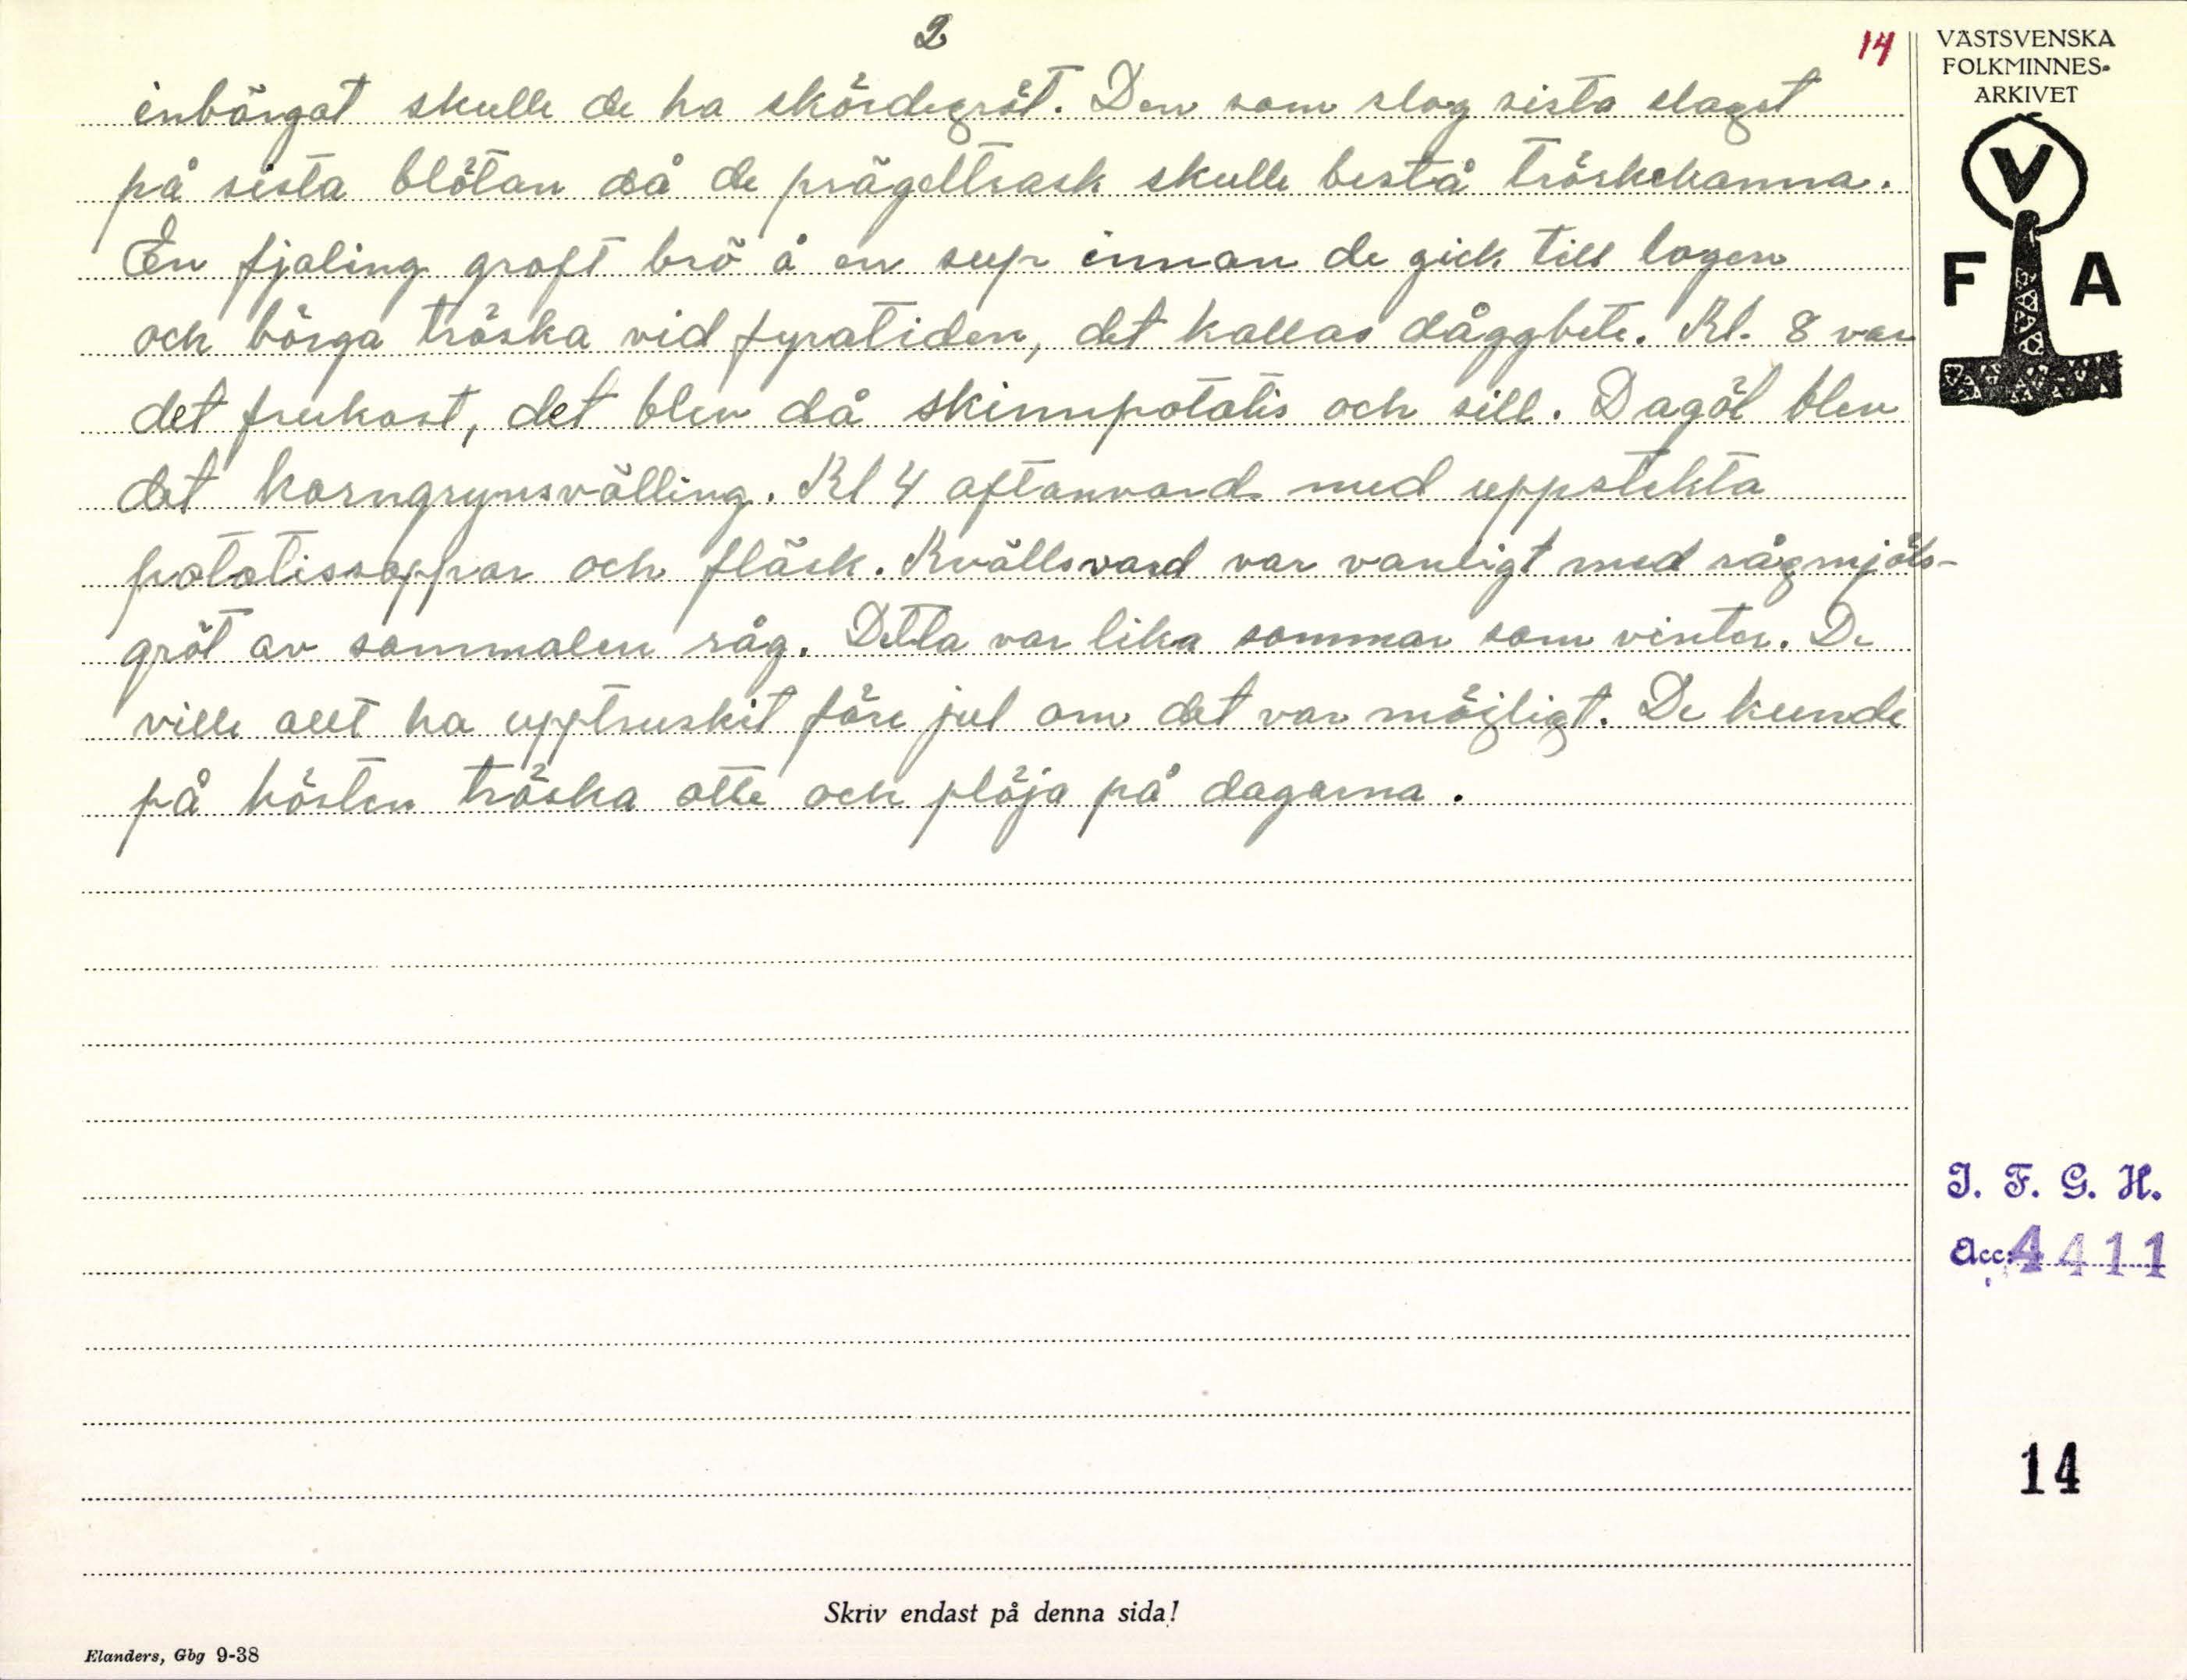 2
14
VÄSTSVENSKA
FOLKMINNES-
ARKIVET
V
F A
inbärgat skulle de ha skördegröt. Den som slog sista slaget
på sista blötan då de prägeltrask skulle bestå tröskekanna.
En fjaling groft brö å en sup innan de gick till logen
och börga tröska vid fyratiden, det kallas dåggbete. Kl. 8 var
det frukost, det blev då skinnpotatis och sill. Dagöl blev
det korngrynsvälling. Kl 4 aftonvard med uppstekta
potatissoppar och fläsk. Kvällsvard var vanligt med rågmjöls-
gröt av sammalen råg. Detta var lika sommar som vinter. De
ville allt ha upptruskit före jul om det var möjligt. De kunde
på hösten tröska otte och plöja på dagarna.
I. F. G. H.
Acc. 4411
14
Skriv endast på denna sida!
Elanders, Gbg 9-38